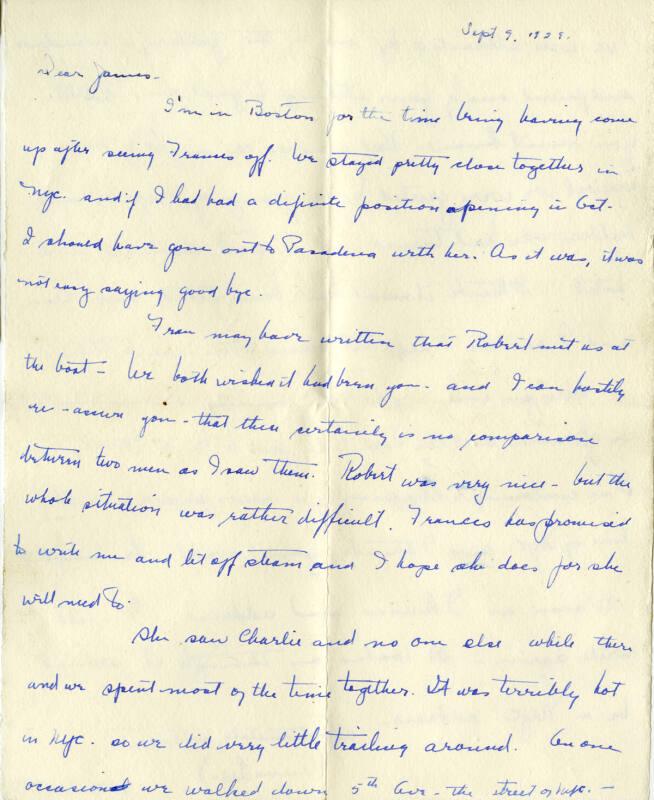 Sept 9, 1929.
Dear James-
I'm in Boston for the time being having come
up after seeing Frances off. We stayed pretty close together in
Nyc. and if I had had a definite position opening in Oct-
I should have gone out to Pasadena with her. As it was, it was
not easy saying good bye.
Fran may have written that Robert met us at
the boat - We both wished it had been you - and I can hastily
re-assure you - that there certainly is no comparison
between two men as I saw them. Robert was very nice - but the
whole situation was rather difficult. Frances has promised
to write me and let off steam and I hope she does for she
will need to
She saw Charlie and no one else while there
and we spent most of the time together. It was terribly hot
in Nyc. so we did very little trailing around. On one
occasion we walked down 5th Ave - the street of Nyc. -